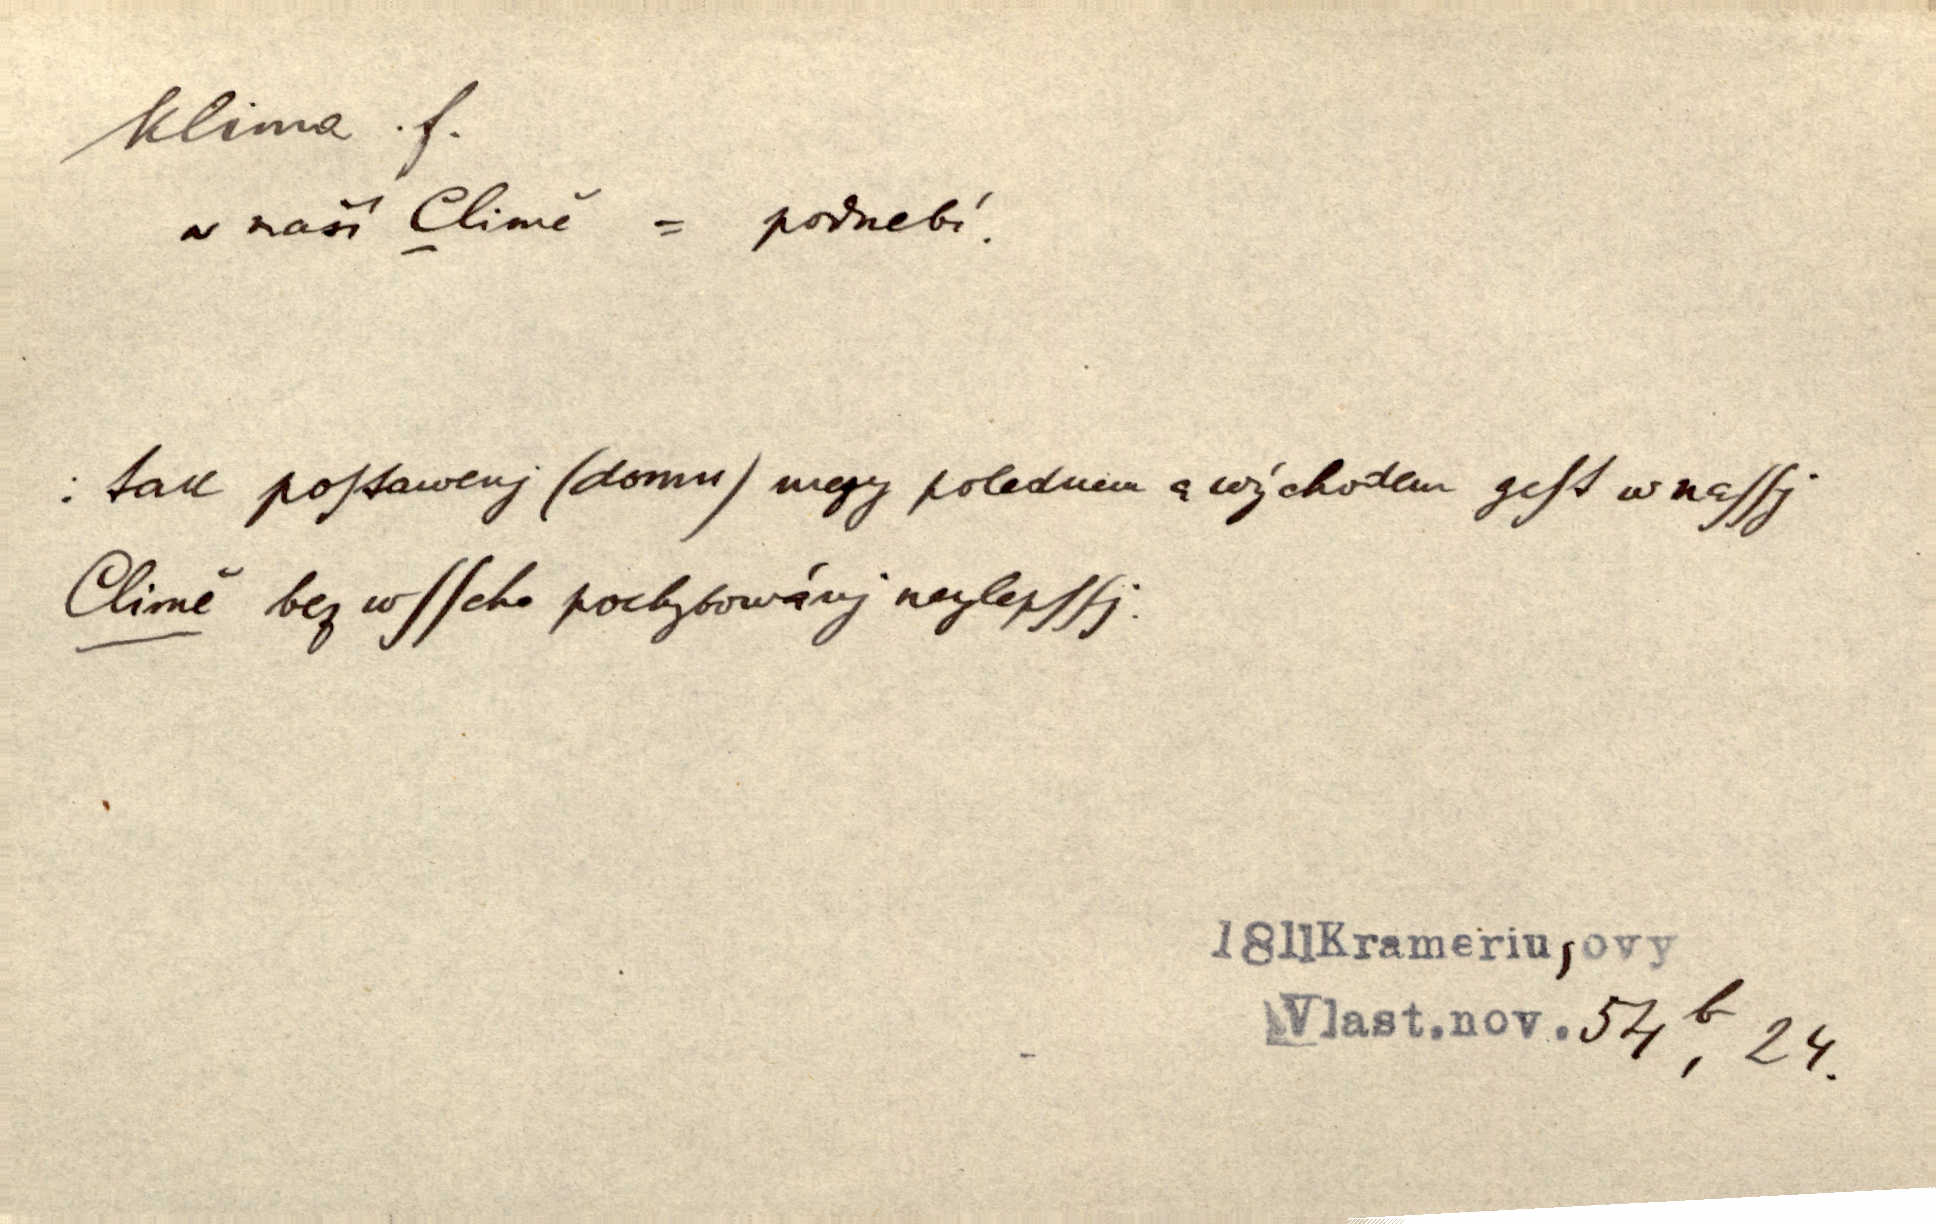 klima f.
w naší Climě = podnebí.
: tak poſtawenj (domu) mezy polednem a východem geſt w naſſj
Climě bez wſſeho pochybowánj neylepſſj.
1811 Krameriusovy
Vlast.nov. 54b, 24.